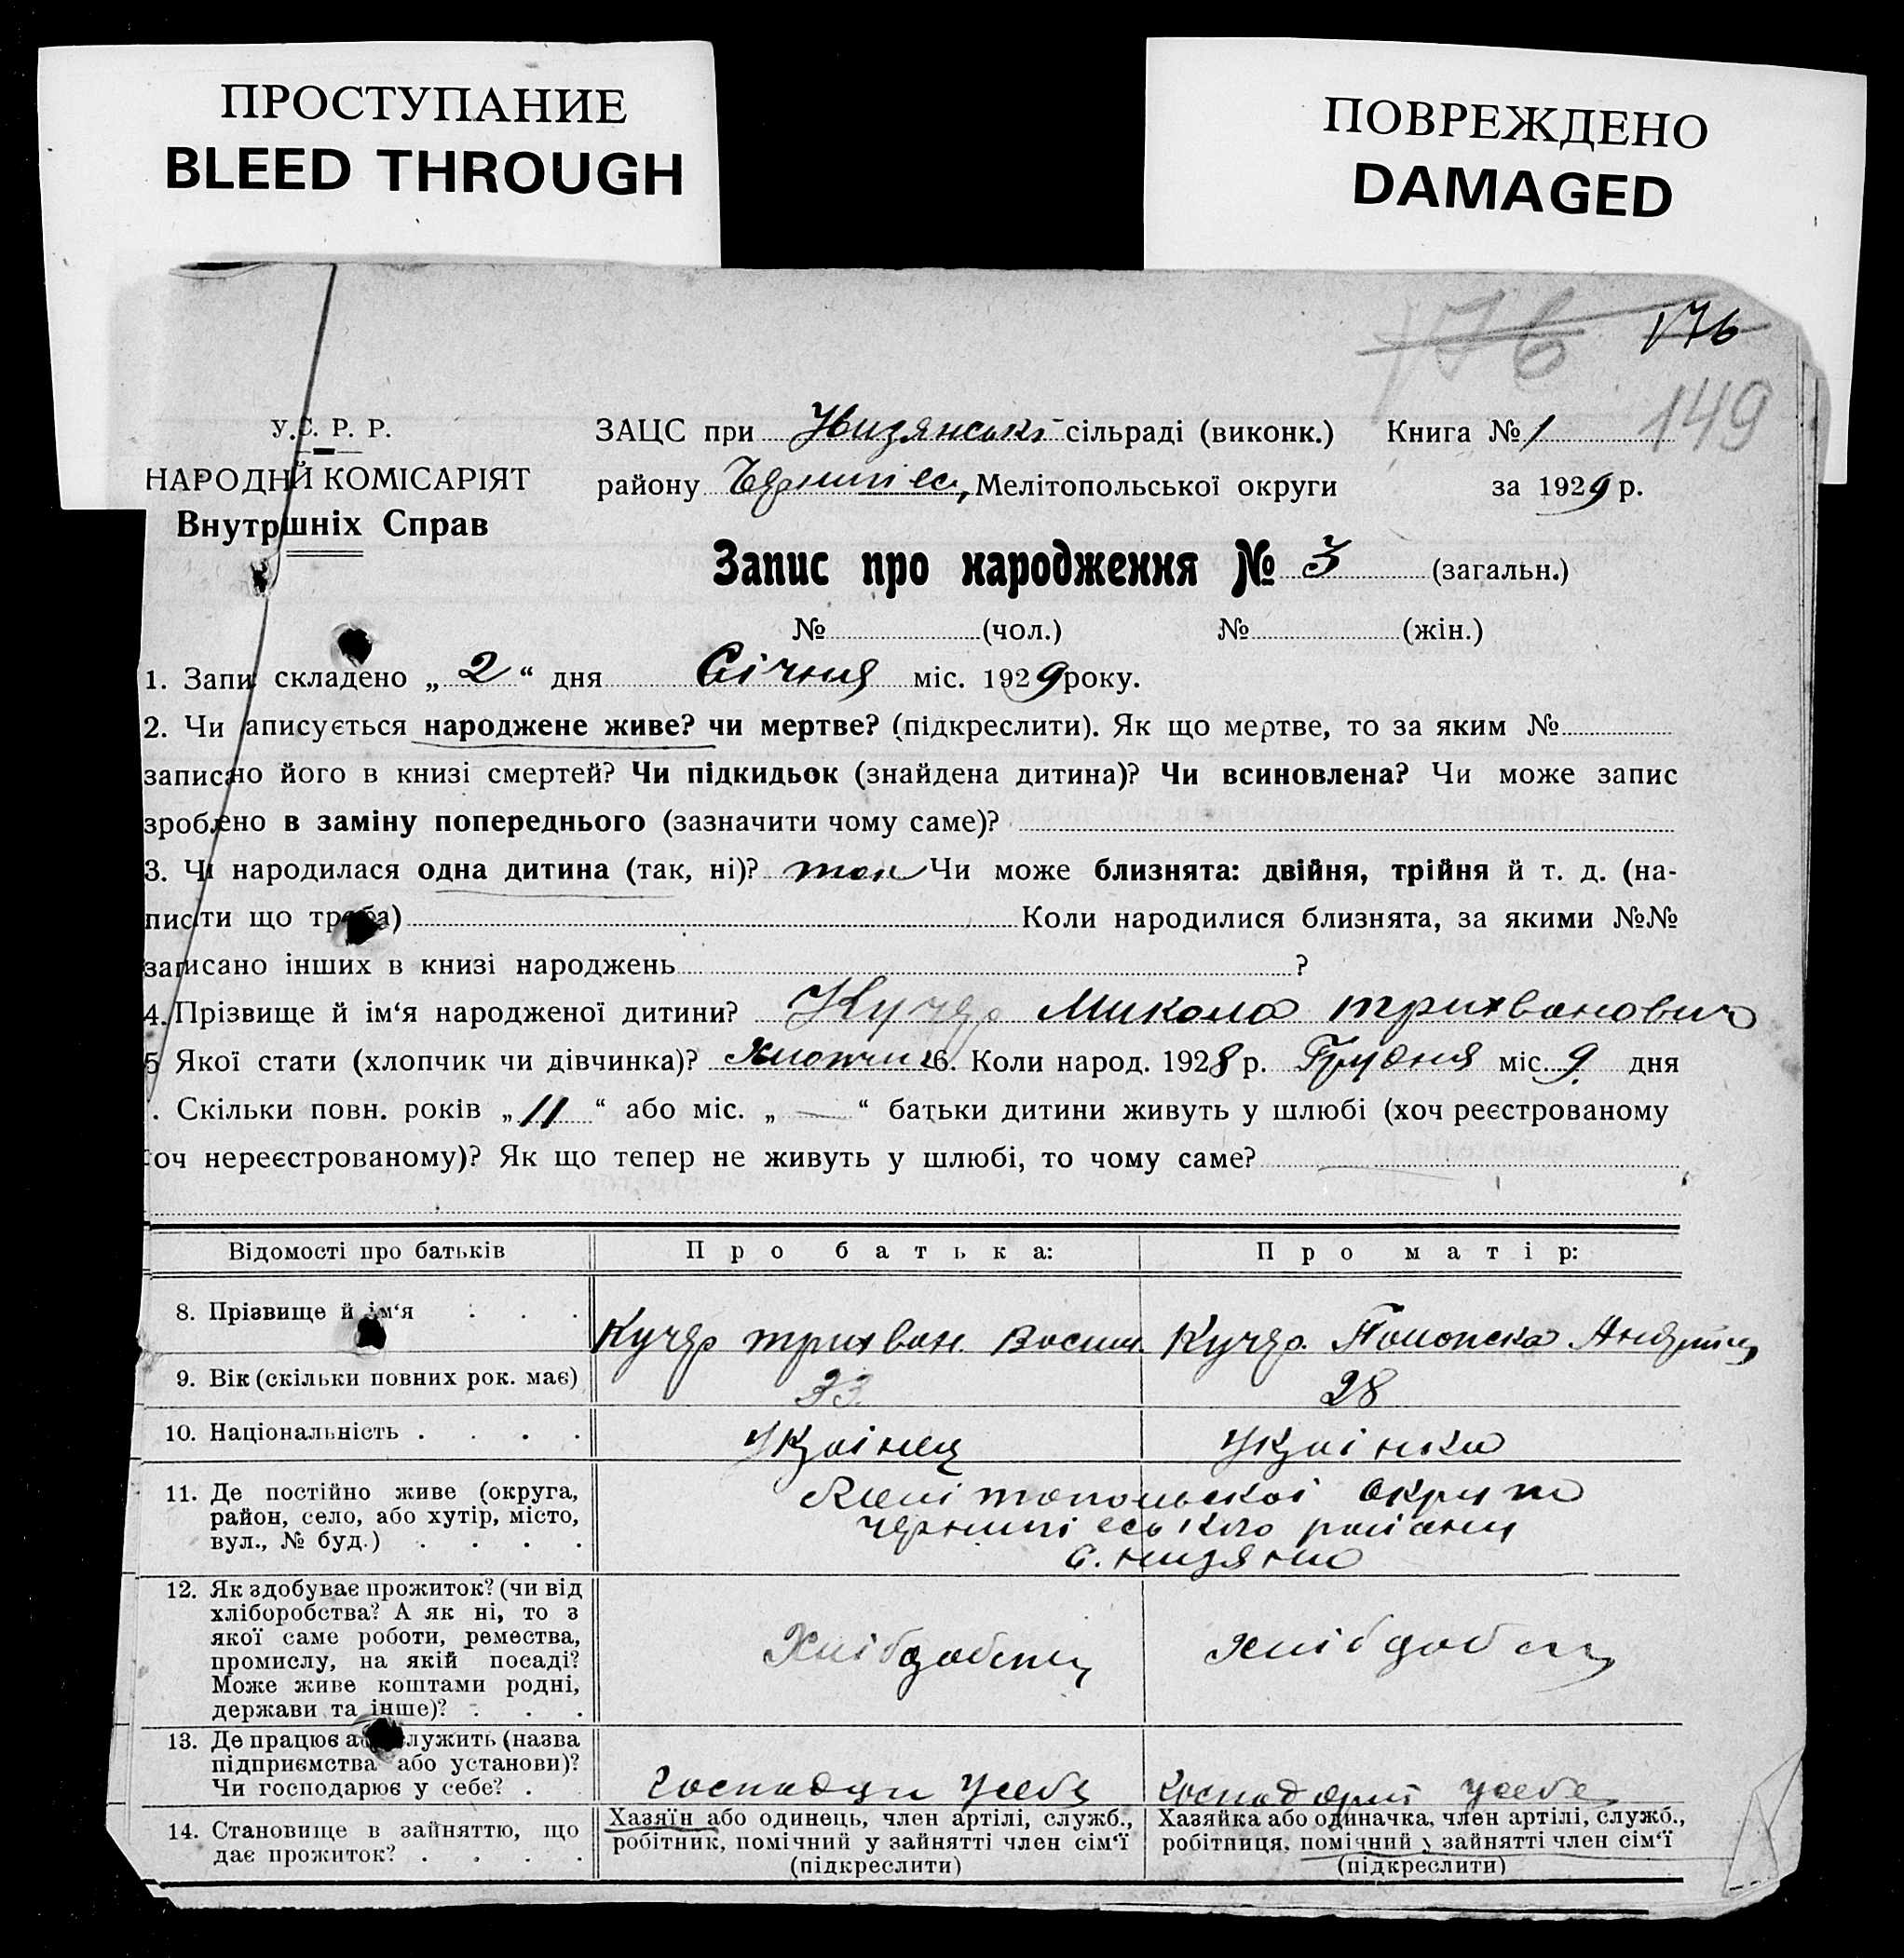 ПРОСТУПАНИЕ
BLEED THROUGH
ПОВРЕЖДЕНО
DAMAGED
176 176
149
У.С. Р. Р.
НАРОДНІЙ КОМІСАРІЯТ
Внутрішніх Справ
ЗАЦС при сільраді (виконк.) Книга № 1
району Мелітопольської округи за 1929 р.
Запис про народження № 3 (загальн.)
№ (чол.) № (жін.)
1. Запис складено „ 2 “ дня Січня міс. 1929 року.
2. Чи записується народжене живе? чи мертве? (підкреслити). Як що мертве, то за яким №
записано його в книзі смертей? Чи підкидьок (знайдена дитина)? Чи всиновлена? Чи може запис
зроблено в заміну попереднього (зазначити чому саме)?
3. Чи народилася одна дитина (так, ні)? так Чи може близнята: двійня, трійня й т. д. (на-
писати що треба) Коли народилися близнята, за якими №№
записано інших в книзі народжень ?
4. Прізвище й ім‘я народженої дитини? Кучер Микола Трихванович
5 Якої стати (хлопчик чи дівчинка)? Хлопчик 6. Коли народ. 1928 р. Грудня міс. 9. дня
. Скільки повн. років „ 11 “ або міс. „ — “ батьки дитини живуть у шлюбі (хоч реєстрованому
хоч нереєстрованому)? Як що тепер не живуть у шлюбі, то чому саме?
Відомості про батьків Про батька: Про матір:
8. Прізвище й ім‘я . . . Кучер Трихван. Васил. Кучер.
9. Вік (скільки повних рок. має) 33. 28
10. Національність . . . . Українец Українка
11. Де постійно живе (округа,
район, село, або хутір, місто,
вул., № буд.) . . . .
Мелітопольскої округи
району
с.
12. Як здобуває прожиток? (чи від
хліборобства? А як ні, то з
якої саме роботи, ремества,
промислу, на якій посаді?
Може живе коштами родні,
держави та інше)? . . .
13. Де працює або служить (назва
підприємства або установи)?
Чи господарює у себе? . .
усебе усебе
14. Становище в зайняттю, що
дає прожиток? . . . .
Хазяїн або одинець, член артілі, служб.,
робітник, помічний у зайнятті член сім‘ї
(підкреслити)
Хазяйка або одиначка, член артілі, служб.,
робітниця, помічний у зайнятті член сім‘ї
(підкреслити)